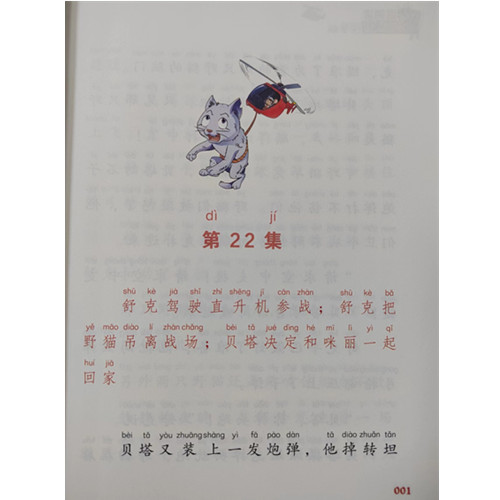 dì jí
第22集
shū kè jià shǐ zhí shēng jī cān zhàn shū kè bǎ
舒克驾驶直升机参战；舒克把
yě māo diào lí zhàn chǎng bèi tǎ jué dìng hé mī lì yì qǐ
野猫吊离战场；贝塔决定和咪丽一起
huí jiā
回家
bèi tǎ yòu zhuāng shàng yì fā pào dàn tā diào zhuǎn tǎn
贝塔又装上一发炮弹，他掉转坦
001